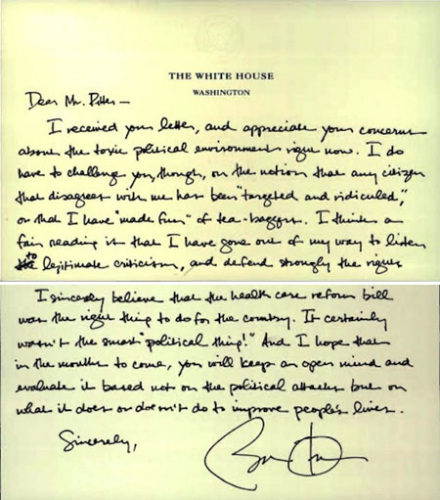 THE WHITE HOUSE
WASHINGTON
Dear Mr. Ritter –
I received your letter, and appreciate your concerns
about the toxic political environment right now. I do
have to challenge you, though, on the notion that any citizen
that disagrees with me has been "targeted and ridiculed,"
or that I have "made fun" of tea-baggers. I think a
fair reading is that I have gone out of my way to listen
to legitimate criticism, and defend strongly the right
I sincerely believe that the health care reform bill
was the right thing to do for the country. It certainly
wasn't the smart "political thing!" And I hope that
in the months to come, you will keep an open mind and
evaluate it based not on the political attacks but on
what it does or doesn't do to improve people's lives.
Sincerely,